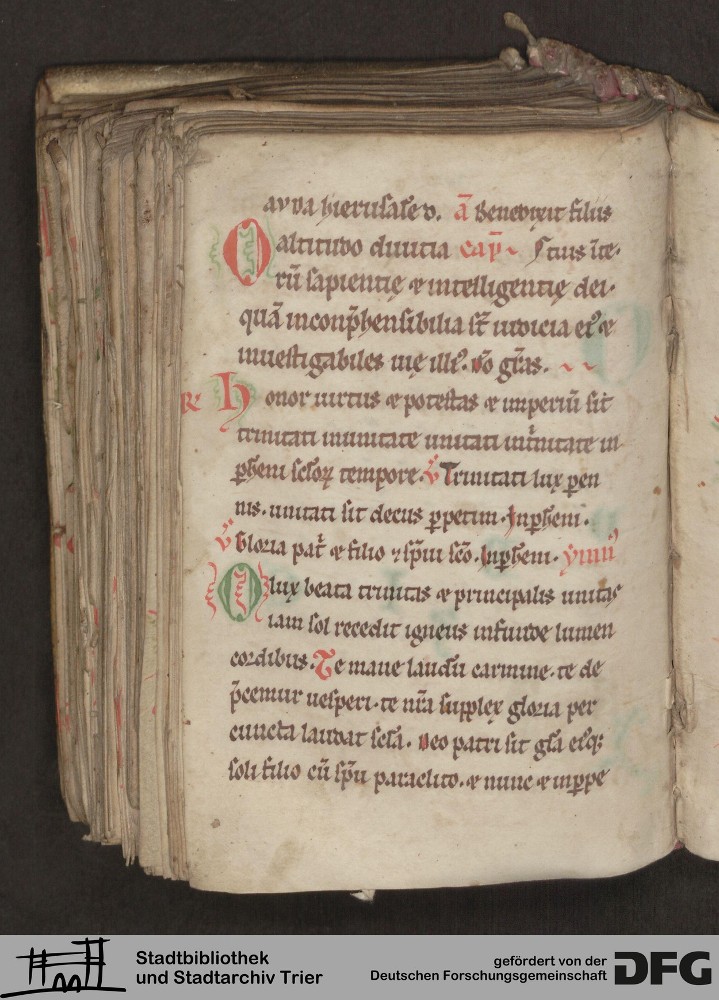 auda hierusalē d. a̅ Benedixit filiis
O altitudo diuitia cap̅ Sctus īte.
rū sapientię & intelligentię dei.
quā inconp̄hensibilia st̄ iudicia ei' &
inuestigabiles uię illi'. do gr̄as.
R Honor uirtus & potestas & imperiū sit
trinitati inunitate unitati int'nitate in
p̱henni sc̄loꝝ tempore. v̄ Trinitati lux ꝑen
nis. unitati sit decus ꝑpetim. Inꝑheni.
v̄ Gloria pat' & filio & sp̄ui sc̄o. Inꝑheni. ymn'
O lux beata trinitas & principalis unitas
iam sol recedit igneus infunde lumen
cordibus. Te mane laudū carmine. te de
p̄cemur uesperi. te nr̄a supplex gloria per
cuncta laudat sc̄la. Deo patri sit gl̄a eiꝰqꝫ
soli filio cū sp̄u paraclito. & nunc & inꝑpe
Stadtbibliothek
und Stadtarchiv Trier
gefördert von der
Deutschen Forschungsgemeinschaft
DFG